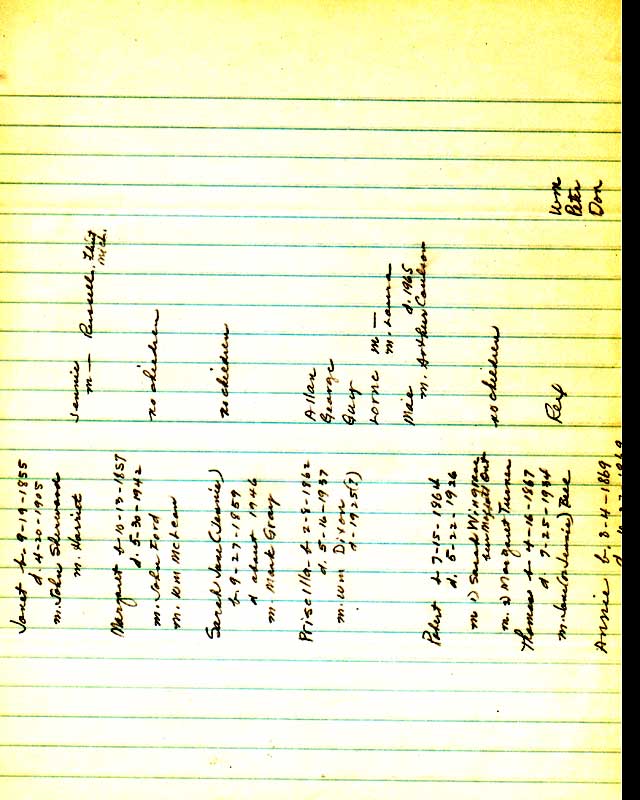 Janet b-9-19-1855
d. 4-20-1905
m. John
m. Harriet
Jennie
m — Russell, Flint
Mich.
Margaret b-10-13-1857
d. 5-30-1942
m. John Ford
m. Wm McLean
no children
Sarah Jane (Jennie)
b-9-27-1859
d about 1946
m Mark Gray
no children
Priscilla-b-2-8-1862
d. 5-16-1937
m. Wm Dixon
d-1925(?)
Allan
George
Guy
Lorne m —
m. Laura
Mae d. 1965
m. Arthur Coulson
Robert b 7-15-1864
d. 5-22-1926
m 1) Sarah
near
m. 2) Margaret Turner
no children
Thomas b-4-16-1867
d. 7-25-1934
m. Jane (or Jennie) Bee
Rex
Wm
Peter
Don
Annie b. 3-4-1869